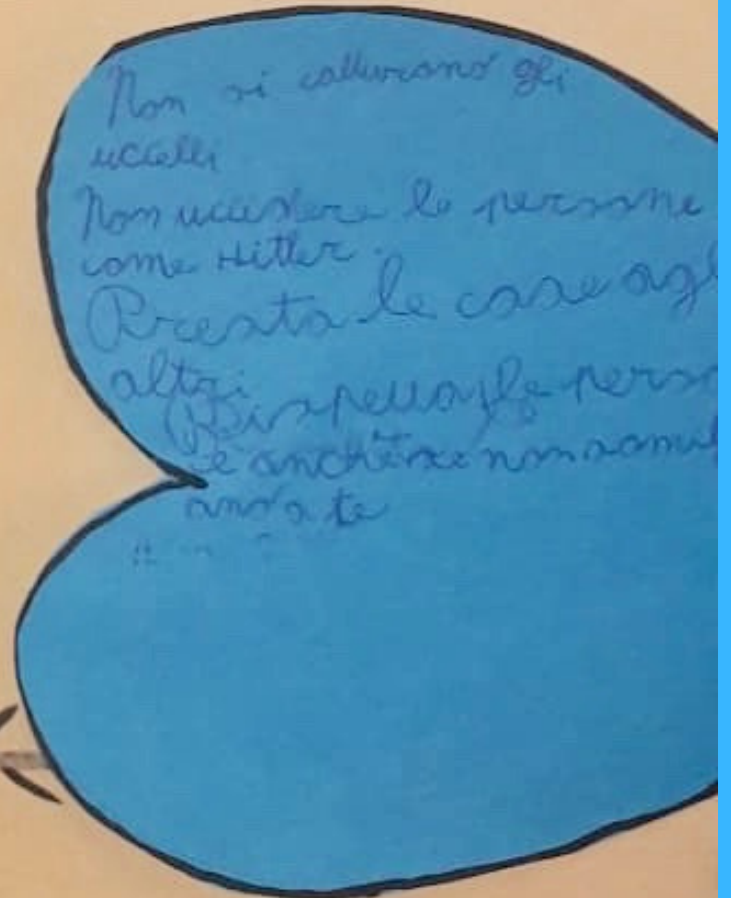 Non si catturano gli
uccelli
Non uccidere le persone
come Hitler.
Presta le cose agl
altri
Rispetta le perso
e anche se non somil
ano a te